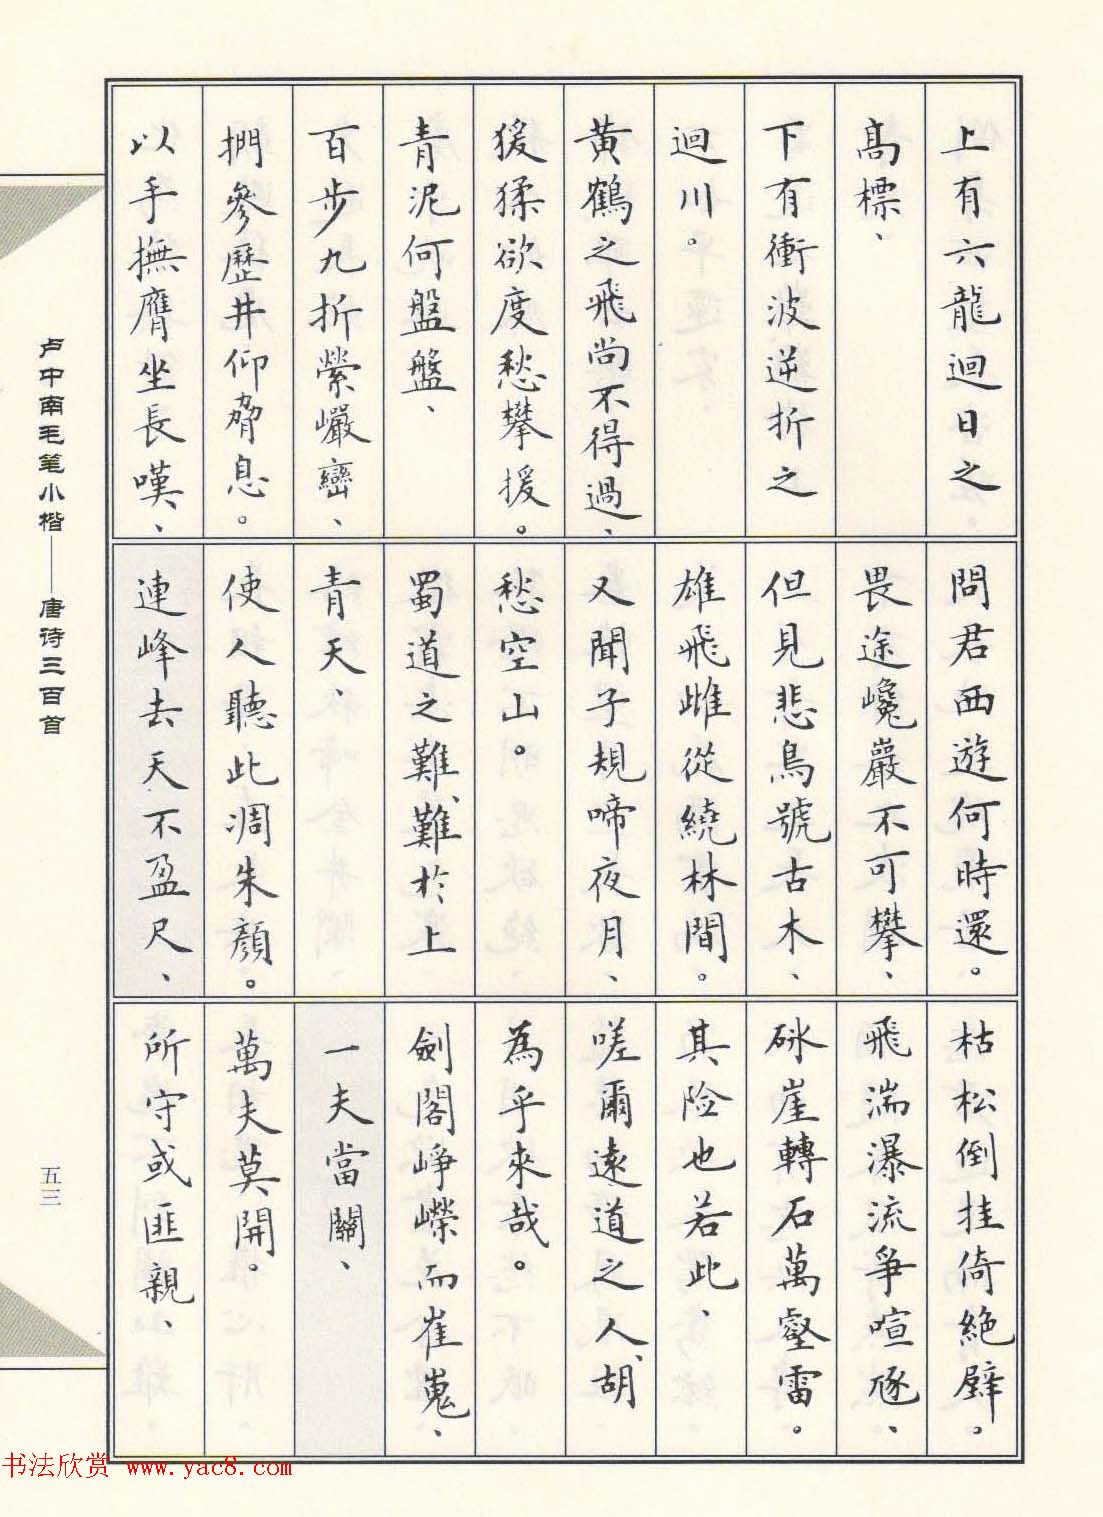 上有六龍迴日之
高標、
下有衝波逆折之
迴川。
黄鶴之飛尚不得過、
猨猱欲度愁攀援。
青泥何盤盤、
百步九折縈巖巒、
捫參歷井仰脅息。
以手撫膺坐長嘆、
問君西遊何時還。
畏途巉巖不可攀、
但見悲鳥號古木、
雄飛雌從繞林間。
又聞子規啼夜月、
愁空山。
蜀道之難、難於上
青天、
使人聽此凋朱顏。
連峰去天不盈尺、
枯松倒挂倚絶壁。
飛湍瀑流爭喧豗、
砯崖轉石萬壑雷。
其险也若此、
嗟爾遠道之人、胡
為乎來哉。
劍閣崢嶸而崔嵬、
一夫當關、
萬夫莫開。
所守或匪親、
卢中南毛笔小楷——唐诗三百首
五三
书法欣赏 www.yac8.com